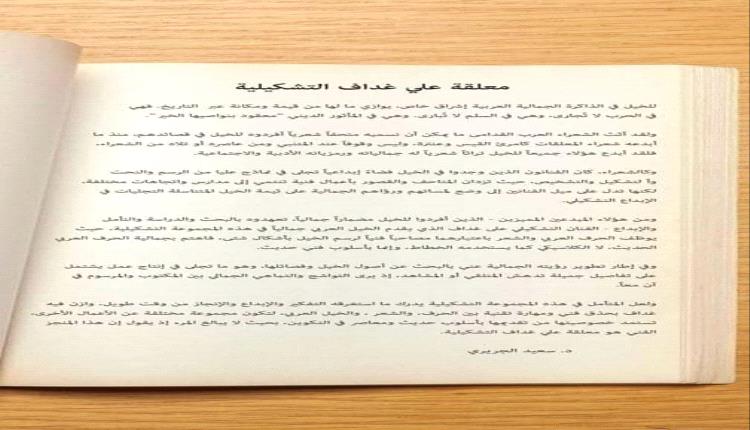 معلقة علي غداف التشكيلية
للخيل في الذاكرة الجمالية العربية إشراق خاص، يوازي ما لها من قيمة ومكانة عبر التاريخ، فهي
في الحرب لا تُجارى، وهي في السلم لا تُبارى، وهي في المأثور الديني "معقود بنواصيها الخير".
ولقد أثث الشعراء العرب القدامى ما يمكن أن نسميه متحفاً شعرياً أفردوه للخيل في قصائدهم، منذ ما
أبدعه شعراء المعلقات كامرئ القيس وعنترة، وليس وقوفاً عند المتنبي ومن عاصره أو تلاه من الشعراء،
فلقد أبدع هؤلاء جميعاً للخيل تراثاً شعرياً له جمالياته ورمزياته الأدبية والاجتماعية.
وكالشعراء، كان الفنانون الذين وجدوا في الخيل فضاءً إبداعياً تجلى في نماذج عليا من الرسم والنحت
والتشكيل والتشخيص، حيث تزدان المتاحف والقصور بأعمال فنية تنتمي إلى مدارس واتجاهات مختلفة،
لكنها تدل على ميل الفنانين إلى وضع لمساتهم ورؤاهم الجمالية على ثيمة الخيل المتناسلة التجليات في
الإبداع التشكيلي.
ومن هؤلاء المبدعين المميزين - الذين أفردوا للخيل مضماراً جمالياً، تعهدوه بالبحث والدراسة والتأمل
والإبداع - الفنان التشكيلي علي غداف الذي يقدم الخيل العربي جمالياً في هذه المجموعة التشكيلية، حيث
يوظف الحرف العربي والشعر باعتبارهما مصاحباً فنياً لرسم الخيل بأشكال شتى، فاهتم بجمالية الحرف العربي
الحديث، لا الكلاسيكي كما يستخدمه الخطاط، وإنما بأسلوب فني حديث.
وفي إطار تطوير رؤيته الجمالية عني بالبحث عن أصول الخيل وفصائلها، وهو ما تجلى في إنتاج عمل يشتمل
على تفاصيل جميلة تدهش المتلقي أو المشاهد، إذ يرى التواشج والتماهي الجمالي بين المكتوب والمرسوم في
آن معاً.
ولعل المتأمل في هذه المجموعة التشكيلية يدرك ما استغرقه التفكير والإبداع والإنجاز من وقت طويل، وازن فيه
غداف بحذق فني ومهارة تقنية بين الحرف، والشعر ، والخيل العربي، لتكون مجموعة مختلفة عن الأعمال الأخرى،
تستمد خصوصيتها من تقديمها بأسلوب حديث ومعاصر في التكوين، بحيث لا يبالغ المرء إذ يقول إن هذا المنجز
الفني هو معلقة علي غداف التشكيلية.
د. سعيد الجريري